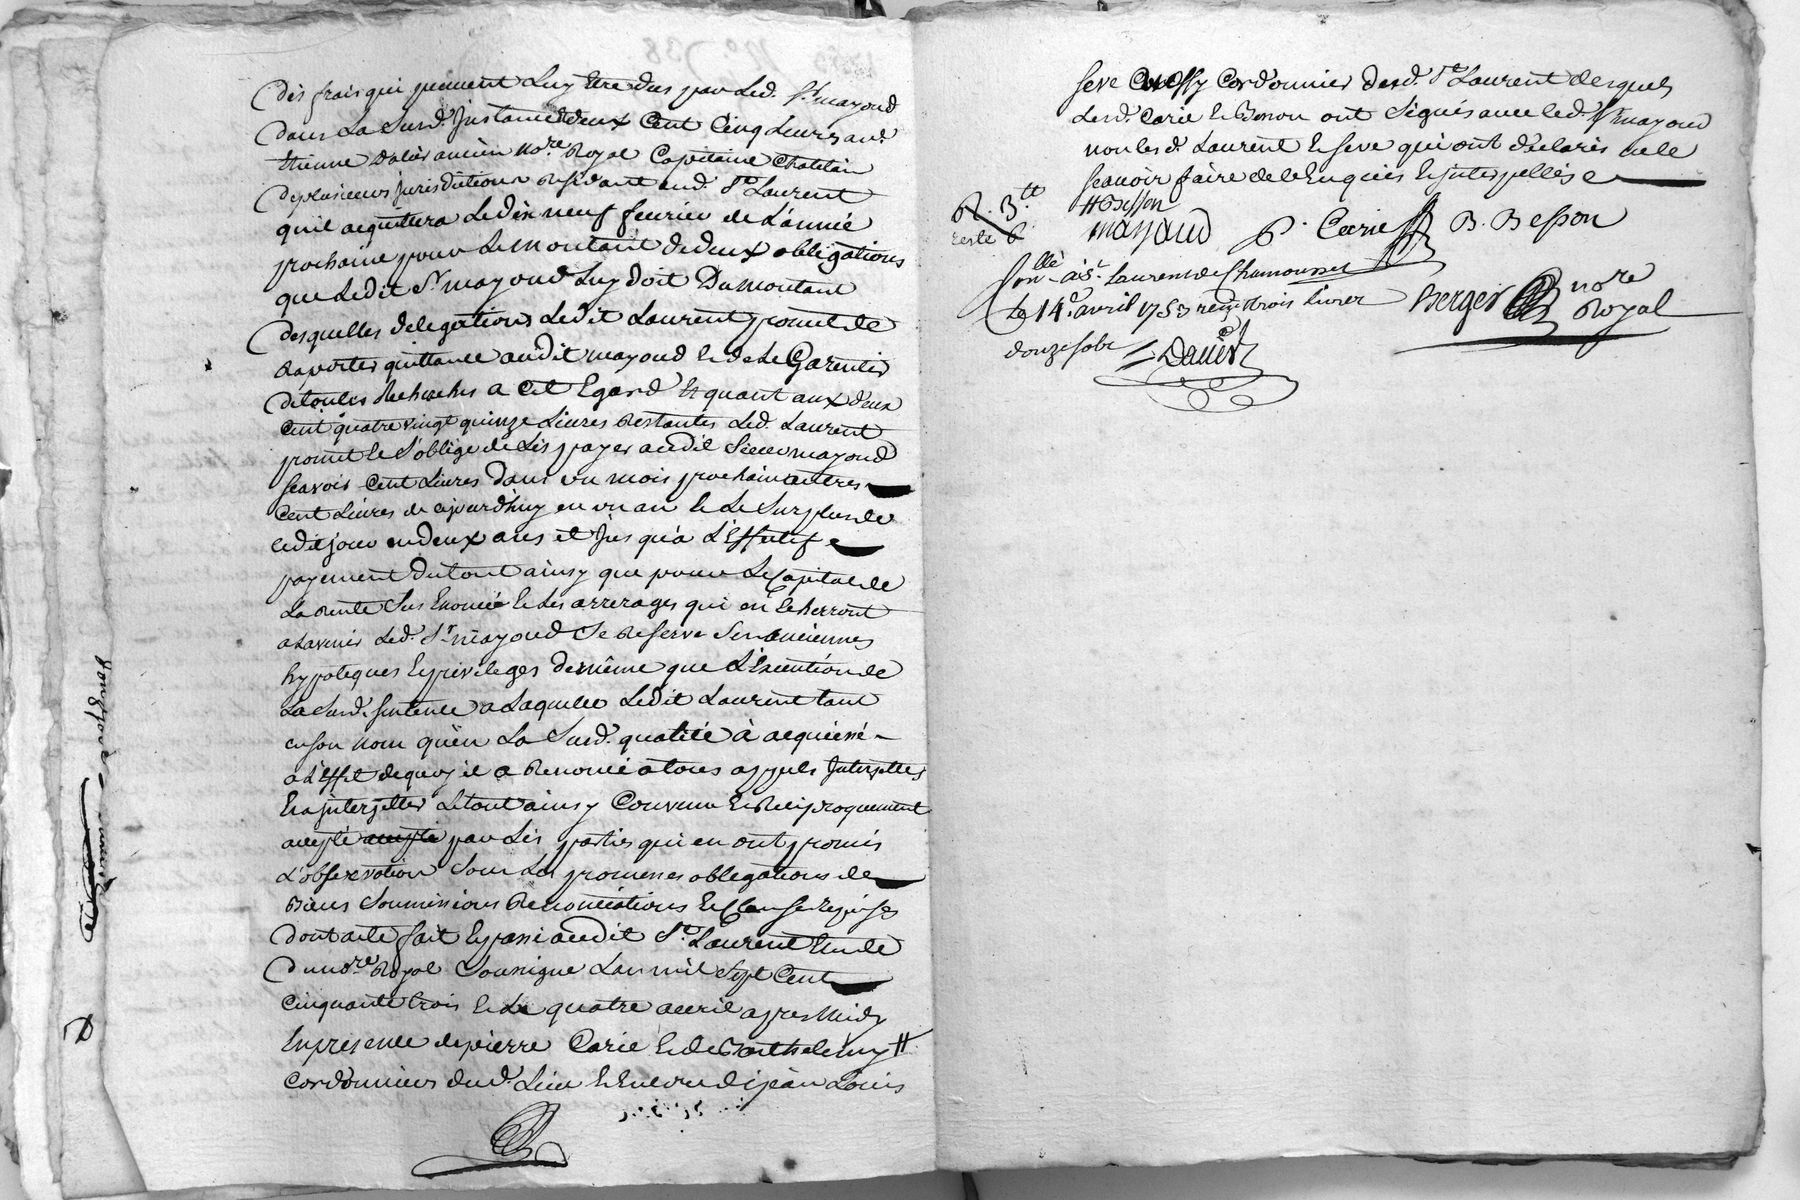 Des frais qui peuvent Luy Etre dus par Led. Sr. mayoud
dans La Susd. Instance deux Cent Cinq Livres au Sr.
Etienne Dalier ancien Nore. Royal Capitaine Chatelain
De plusieurs jurisdictions Residant aud. St. Laurent
qu'il acquittera Le dix neuf fevrier de L'année
prochaine pour Le montant de deux obligations
que Ledit Sr. mayoud Luy doit Du montant
Desquelles delegations Ledit Laurent promet de
Raporter quittance audit mayoud & de Le Garentir
De toutes Recherches a Cet Egard Et quant aux deux
Cent quatre vingt quinze Livres Restantes Led. Laurent
promet & S'oblige de Les payer audit Sieur mayoud
Scavoir Cent Livres dans un mois prochain autres
Cent Livres de ajourd'huy en un an & Le Surplus de
cedit jour en deux ans et Jusqu'a L'Effectif
payement Du tout ainsy que pour Le Capital de
La Rente Sus Enoncée & des arrerages qui en Echerront
a Lavenir Led. Sr. mayoud Se Reserve Ses anciennes
hypoteques & privileges de même que L'Execution de
La Susd. Sentence a Laquelle Ledit Laurent tant
en Son Nom qu'en La Susd. qualité à acquiéssé
a L'Effet de quoy il a Renoncé a tous appels Interjettés
Et a jnterjetter Le tout ainsy Convenu & Reciproquement
accepté accepté par Les parties qui en ont promis
L'observation Sous Les promesses obligations de
Biens Soumissions Renonciations & Clauses Requises
Dont acte fait & passé audit St. Laurent Etude
Du nore. Royal Soussigné L'an mil Sept Cent
Cinquante trois & Le quatre avril apres Midy
En presence de pierre Carie & de Barthelemy #
Cordonniers dud. Lieu & Encore de jean Louis
Seve Cordonnier dud. St. Laurent Desquels
Lesd. Carie & Besson ont Signés avec led. Sr. mayoud
non lesd. Laurent & Seve qui ont declarés ne le
Scavoir faire de ce Enquis & Interpellés
# Besson
R. 3tt
reste
mayoud P. Carie B. Besson
Conllé. à St. Laurent de Chamousset
Le 14e. avril 1753 reçu trois livres
douze sols
Berger nore
Royal